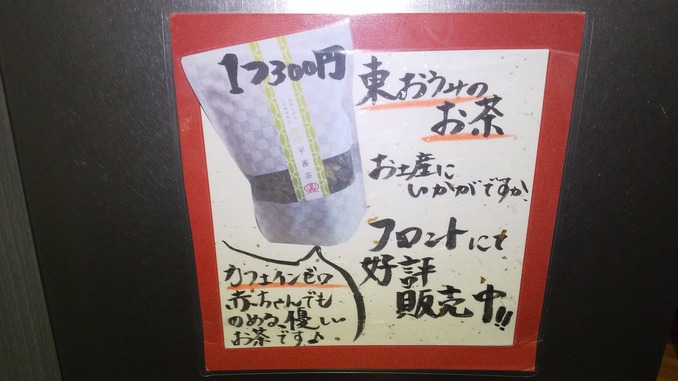 1つ300円
東おうみの
お茶
お土産に
いかがですか
フロントにて
好評
販売中!!
平番茶
カフェインゼロ
赤ちゃんでも
のめる、優しい
お茶です♪